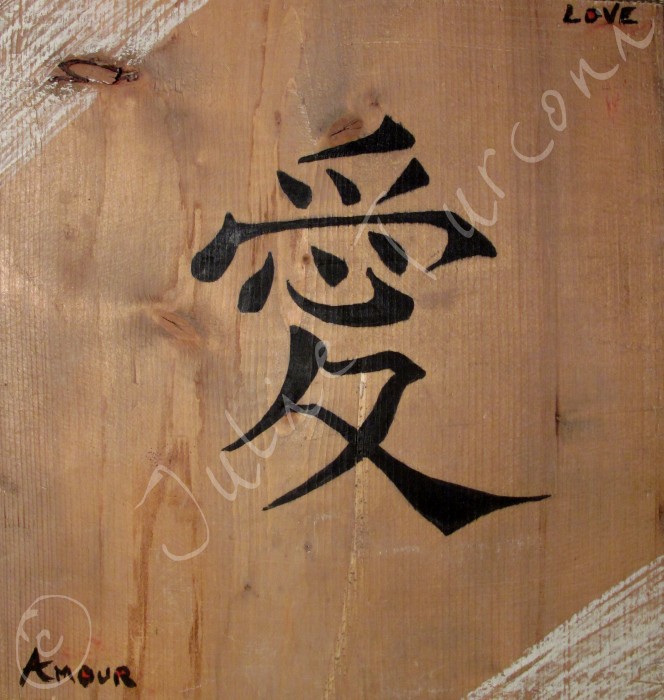 LOVE
愛
Julie Turconi
©
AMOUR